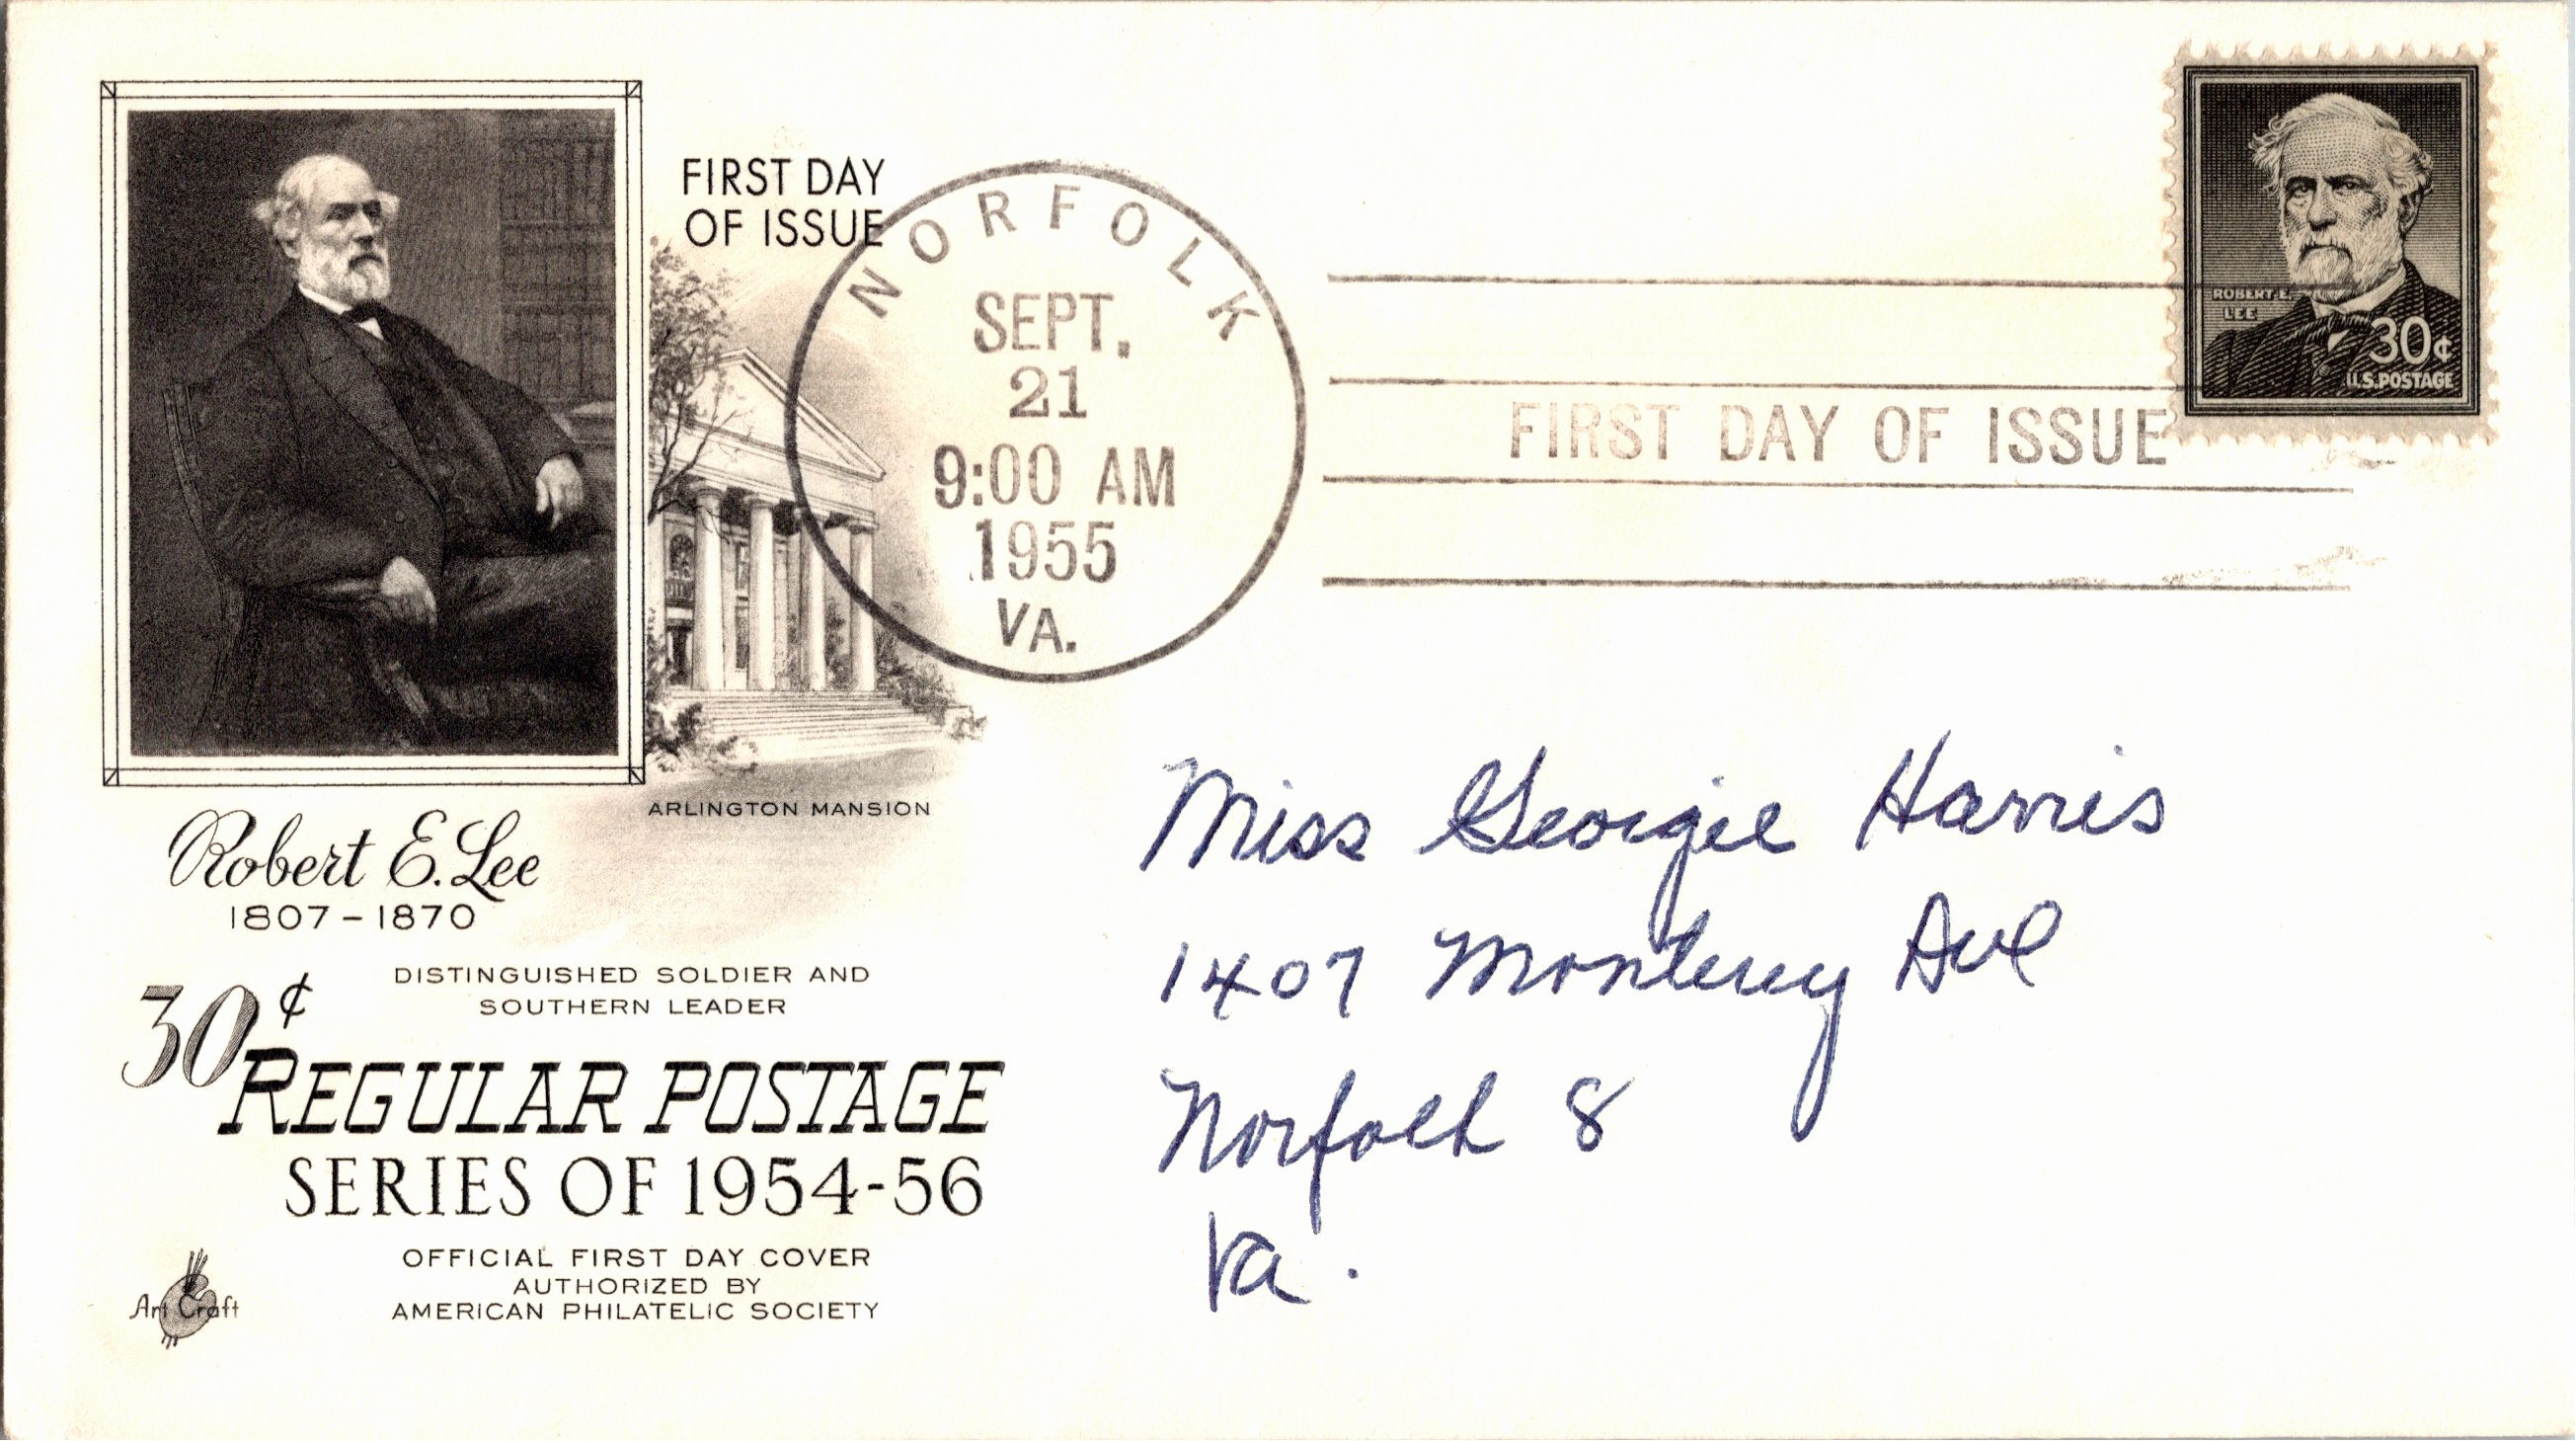 FIRST DAY
OF ISSUE
NORFOLK
SEPT.
21
9:00 AM
1955
VA.
FIRST DAY OF ISSUE
ROBERT E.
LEE
30¢
U.S. POSTAGE
ARLINGTON MANSION
Robert E. Lee
1807-1870
DISTINGUISHED SOLDIER AND
SOUTHERN LEADER
30¢
REGULAR POSTAGE
SERIES OF 1954-56
OFFICIAL FIRST DAY COVER
AUTHORIZED BY
AMERICAN PHILATELIC SOCIETY
Art Craft
Miss Georgie Harris
1407 Monterey Ave
Norfolk 8
Va.